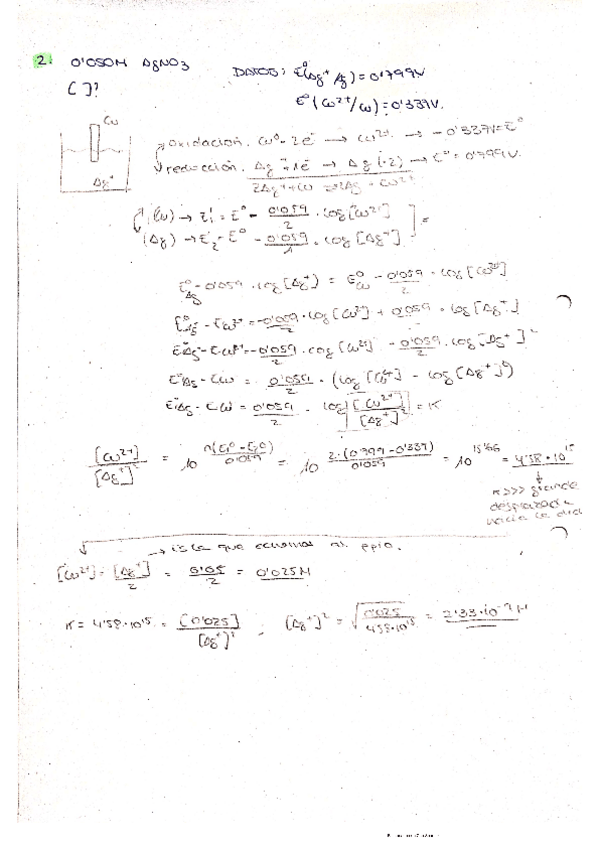 2. 0'050M AgNO3
DATOS: E°(Ag+/Ag) = 0'799V
[ ]?
E° (Cu2+/Cu) = 0'337V.
Cu
oxidación. Cu° - 2e- → Cu2+ → -0'337V = E°
reducción. Ag+ + 1e- → Ag (·2) → E° = 0'799V.
Ag+
2Ag+ + Cu ⇌ 2Ag + Cu2+
(Cu) → E1 = E° - 0'059/2 · log [Cu2+]
(Ag) → E2 = E° - 0'059/1 · log [Ag+]
=
E°Ag - 0'059 · log [Ag+] = E°Cu - 0'059/2 · log [Cu2+]
E°Ag - ECu2+ = -0'059/2 · log [Cu2+] + 0'059 · log [Ag+]
E°Ag - ECu2+ = -0'059/2 · log [Cu2+] - 0'059/2 · log [Ag+]2
E°Ag - ECu = 0'059/2 · (log [Cu2+] - log [Ag+]2)
E°Ag - ECu = 0'059/2 · log [Cu2+]/[Ag+]2 = K
[Cu2+]/[Ag+]2 = 10 n(E1° - E2°)/0'059 = 10 2·(0'799-0'337)/0'059 = 10 15'66 = 4'58·10 15
K>>> grande
desplazado
hacia la dcha
→ es la que echamos al ppio.
[Cu2+] = [Ag+]/2 = 0'05/2 = 0'025M
K = 4'58·10 15 = [0'025]/[Ag+]2 , [Ag+]2 = √0'025/4'58·10 15 = 2'33·10 -9 M